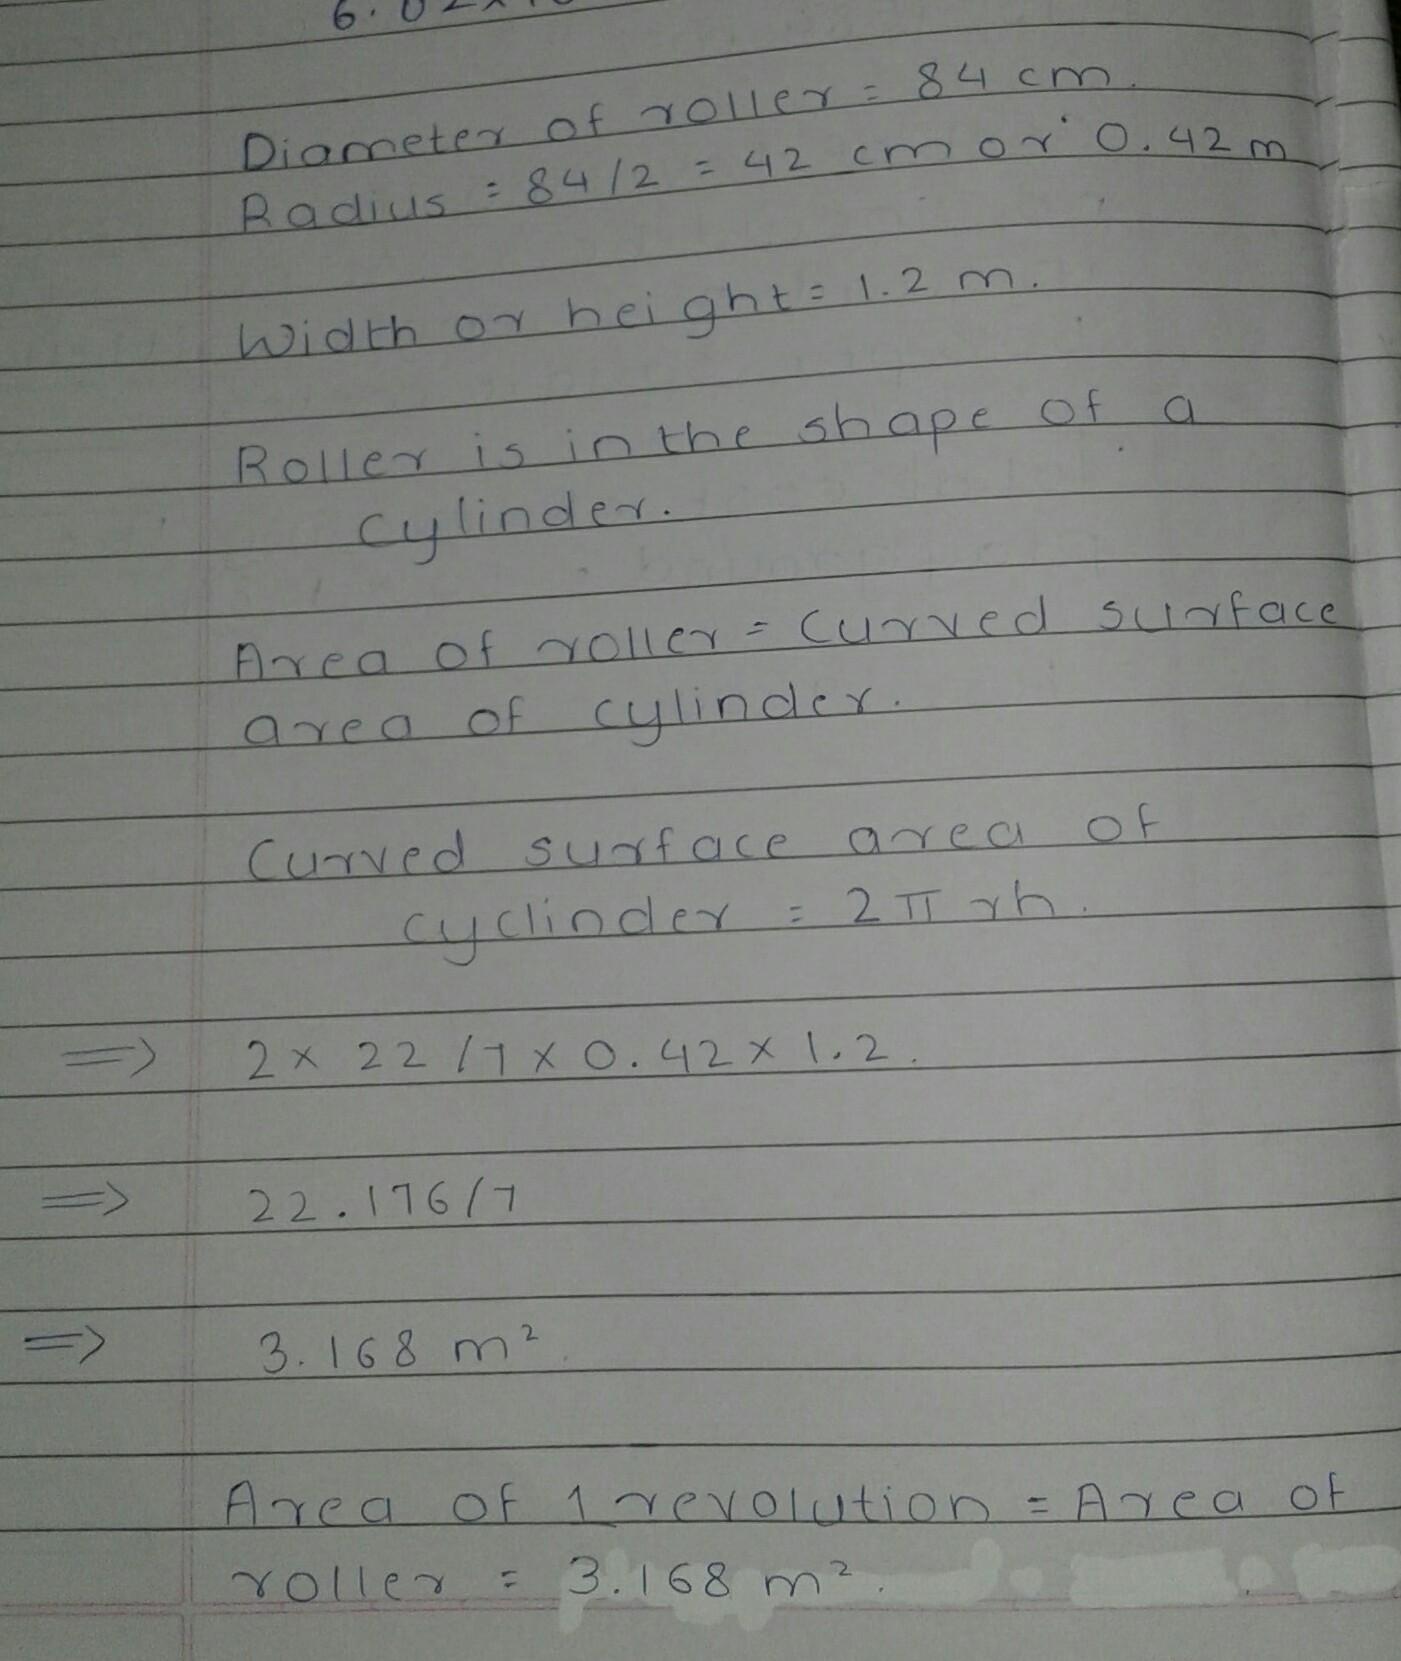 6.02×
Diameter of roller = 84 cm.
Radius = 84/2 = 42 cm or 0.42 m
Width or height = 1.2 m.
Roller is in the shape of a
cylinder.
Area of roller = Curved surface
area of cylinder.
Curved surface area of
cyclinder = 2πrh.
=> 2 × 22/7 × 0.42 × 1.2.
=> 22.176/7
=> 3.168 m²
Area of 1 revolution = Area of
roller = 3.168 m².